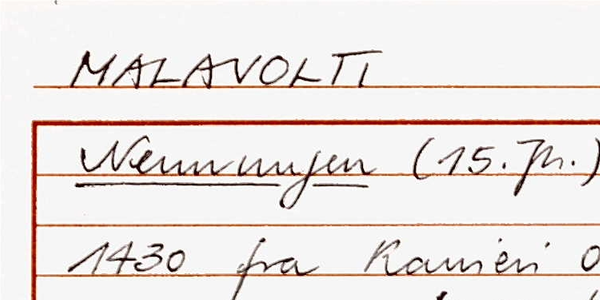 MALAVOLTI
Nennungen (15. Jh.)
1430 fra Ranieri